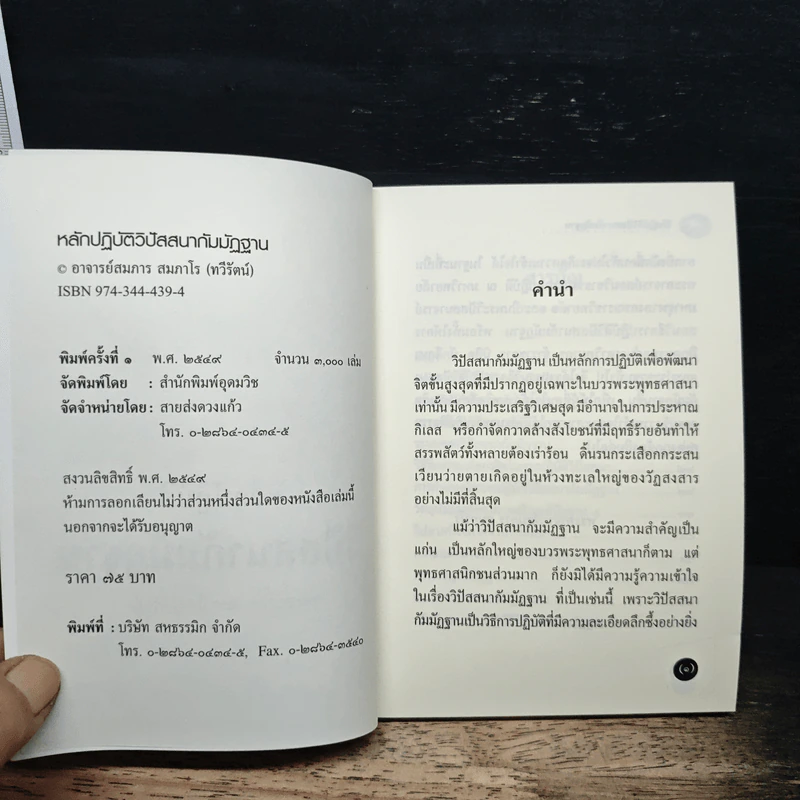 หลักปฏิบัติวิปัสสนากัมมัฏฐาน
© อาจารย์สมภาร สมภาโร (ทวีรัตน์)
ISBN 974-344-439-4
พิมพ์ครั้งที่ ๑ พ.ศ. ๒๕๔๙ จำนวน ๓,๐๐๐ เล่ม
จัดพิมพ์โดย : สำนักพิมพ์อุดมวิช
จัดจำหน่ายโดย : สายส่งดวงแก้ว
โทร. ๐-๒๘๖๔-๐๔๓๔-๕
สงวนลิขสิทธิ์ พ.ศ. ๒๕๔๙
ห้ามการลอกเลียนไม่ว่าส่วนหนึ่งส่วนใดของหนังสือเล่มนี้
นอกจากจะได้รับอนุญาต
ราคา ๗๕ บาท
พิมพ์ที่ : บริษัท สหธรรมิก จำกัด
โทร. ๐-๒๘๖๔-๐๔๓๔-๕, Fax. ๐-๒๘๖๔-๓๕๔๐
คำนำ
วิปัสสนากัมมัฏฐาน เป็นหลักการปฏิบัติเพื่อพัฒนา
จิตขั้นสูงสุดที่มีปรากฏอยู่เฉพาะในบวรพระพุทธศาสนา
เท่านั้น มีความประเสริฐวิเศษสุด มีอำนาจในการประหาณ
กิเลส หรือกำจัดกวาดล้างสังโยชน์ที่มีฤทธิ์ร้ายอันทำให้
สรรพสัตว์ทั้งหลายต้องเร่าร้อน ดิ้นรนกระเสือกกระสน
เวียนว่ายตายเกิดอยู่ในห้วงทะเลใหญ่ของวัฏสงสาร
อย่างไม่มีที่สิ้นสุด
แม้ว่าวิปัสสนากัมมัฏฐาน จะมีความสำคัญเป็น
แก่น เป็นหลักใหญ่ของบวรพระพุทธศาสนาก็ตาม แต่
พุทธศาสนิกชนส่วนมาก ก็ยังมิได้มีความรู้ความเข้าใจ
ในเรื่องวิปัสสนากัมมัฏฐาน ที่เป็นเช่นนี้ เพราะวิปัสสนา
กัมมัฏฐานเป็นวิธีการปฏิบัติที่มีความละเอียดลึกซึ้งอย่างยิ่ง
(๑)